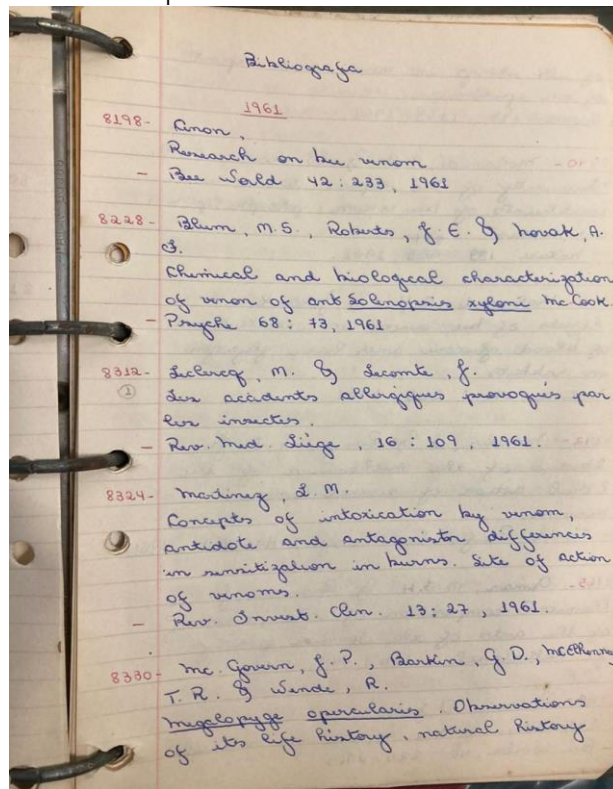 Bibliografia
1961
8198- Anon,
Research on bee venom
- Bee World 42 : 233, 1961
8228- Blum, M.S., Roberts, J. E. & Novak, A.
F.
Chemical and biological characterization
of venon of ant Solenopsis xyloni Mc Cook
- Psyche 68 : 73, 1961
8312- Leclercq, M. & Lecomte, J.
Les accidents allergiques provoqués par
les insectes.
- Rev. Med. Liége, 16 : 109, 1961.
8324- Martinez, L. M.
Concepts of intoxication by venom,
antidote and antagoniston differences
in sensitization in burns. Site of action
of venoms.
- Rev. Invest. Clin. 13 : 27, 1961.
8330- Mc. Govern, J. P., Barkin, G. D., McElhenney
T. R. & Wende, R.
Megalopyge opercularis. Observations
of its life history, natural history